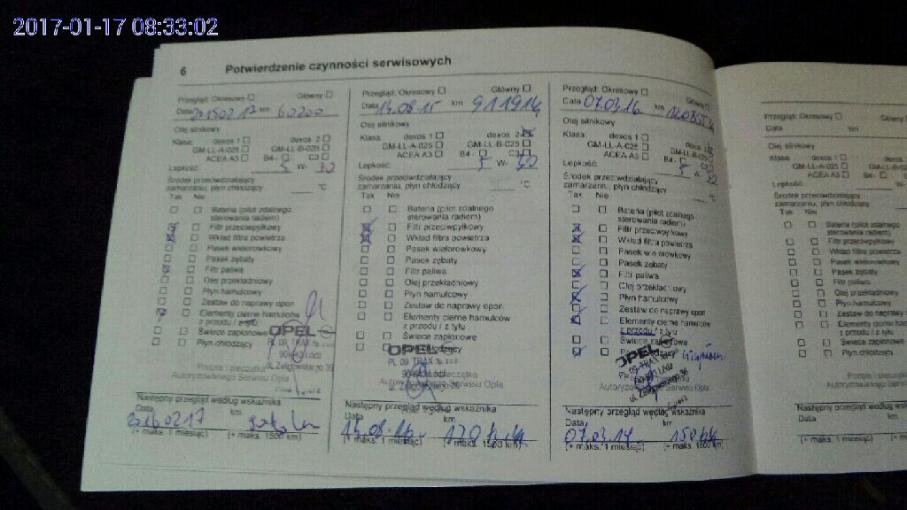 2017-01-17 08:33:02
6 Potwierdzenie czynności serwisowych
Przegląd: Okresowy Główny
Data km 60200
Olej silnikowy
Klasa: dexos 1 dexos 2
GM-LL-A-025 GM-LL-B-025
ACEA A3 B4 - C3
Lepkość: 5 W- 30
Środek przeciwdziałający
zamarzaniu, płyn chłodzący °C
Tak Nie
Bateria (pilot zdalnego
sterowania radiem)
Filtr przeciwpyłkowy
Wkład filtra powietrza
Pasek wielorowkowy
Pasek zębaty
Filtr paliwa
Olej przekładniowy
Płyn hamulcowy
Zestaw do naprawy opon
Elementy cierne hamulców
z przodu / z tyłu
Świece zapłonowe
Płyn chłodzący
OPEL
Podpis i pieczątka
Autoryzowanego Serwisu Opla
Następny przegląd według wskaźnika
Data km
(+ maks. 1 miesiąc) (+ maks. 1500 km)
Przegląd: Okresowy Główny
Data 13.08.15 km 911914
Olej silnikowy
Klasa dexos 1 dexos 2
GM-LL-A-025 GM-LL-B-025
ACEA A3 B4 - C3
Lepkość: 5 W- 30
Środek przeciwdziałający
zamarzaniu, płyn chłodzący °C
Tak Nie
Bateria (pilot zdalnego
sterowania radiem)
Filtr przeciwpyłkowy
Wkład filtra powietrza
Pasek wielorowkowy
Pasek zębaty
Filtr paliwa
Olej przekładniowy
Płyn hamulcowy
Zestaw do naprawy opon
Elementy cierne hamulców
z przodu / z tyłu
Świece zapłonowe
OPEL
Autoryzowanego Serwisu Opla
Następny przegląd według wskaźnika
Data km
(+ maks. 1 miesiąc) (+ maks. 1500 km)
Przegląd: Okresowy Główny
Data 07.03.16 km
Olej silnikowy
Klasa dexos 1
GM-LL-A-025 GM-LL-B-025
ACEA A3 B4 - C3
Lepkość: 5
Środek przeciwdziałający
zamarzaniu, płyn chłodzący °C
Tak Nie
Bateria (pilot zdalnego
sterowania radiem)
Filtr przeciwpyłkowy
Wkład filtra powietrza
Pasek wielorowkowy
Pasek zębaty
Filtr paliwa
Olej przekładniowy
Płyn hamulcowy
Zestaw do naprawy opon
Elementy cierne hamulców
z przodu / z tyłu
Świece zapłonowe
OPEL
Autoryzowanego Serwisu Opla
Następny przegląd według wskaźnika
Data 07.03.17 km
(+ maks. 1 miesiąc) (+ maks. 1500 km)
Przegląd: Okresowy
Data km
Olej silnikowy
Klasa: dexos 1
GM-LL-A-025
ACEA A3 B4 -
Lepkość:
Środek przeciwdziałający
zamarzaniu, płyn chłodzący
Tak Nie
Bateria (pilot zdalnego
sterowania radiem)
Filtr przeciwpyłkowy
Wkład filtra powietrza
Pasek wielorowkowy
Pasek zębaty
Filtr paliwa
Olej przekładniowy
Płyn hamulcowy
Zestaw do naprawy
Elementy cierne
z przodu / z tyłu
Świece zapłonowe
Płyn chłodzący
Następny przegląd według
Data
(+ maks. 1 miesiąc)